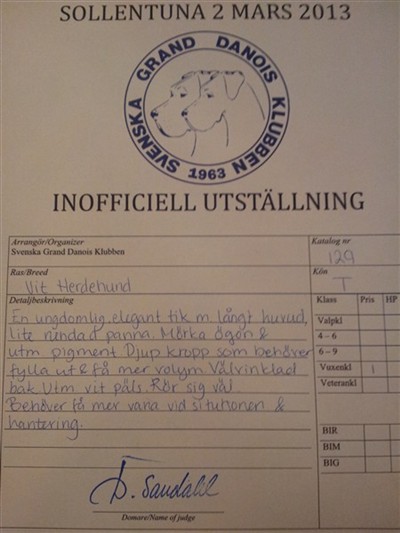 SOLLENTUNA 2 MARS 2013
SVENSKA GRAND DANOIS KLUBBEN
1963
INOFFICIELL UTSTÄLLNING
Arrangör/Organizer
Svenska Grand Danois Klubben
Katalog nr
129
Ras/Breed
Vit Herdehund
Kön
T
Detaljbeskrivning
Klass Pris HP
En ungdomlig elegant tik m långt huvud,
lite rundad panna. Mörka ögon &
utm pigment. Djup kropp som behöver
fylla ut & få mer volym. Välvinklad
bak. Utm vit päls. Rör sig väl.
Behöver få mer vana vid situtionen &
hantering.
Valpkl
4-6
6-9
Vuxenkl 1
Veterankl
BIR
BIM
BIG
D. Sandahl
Domare/Name of judge